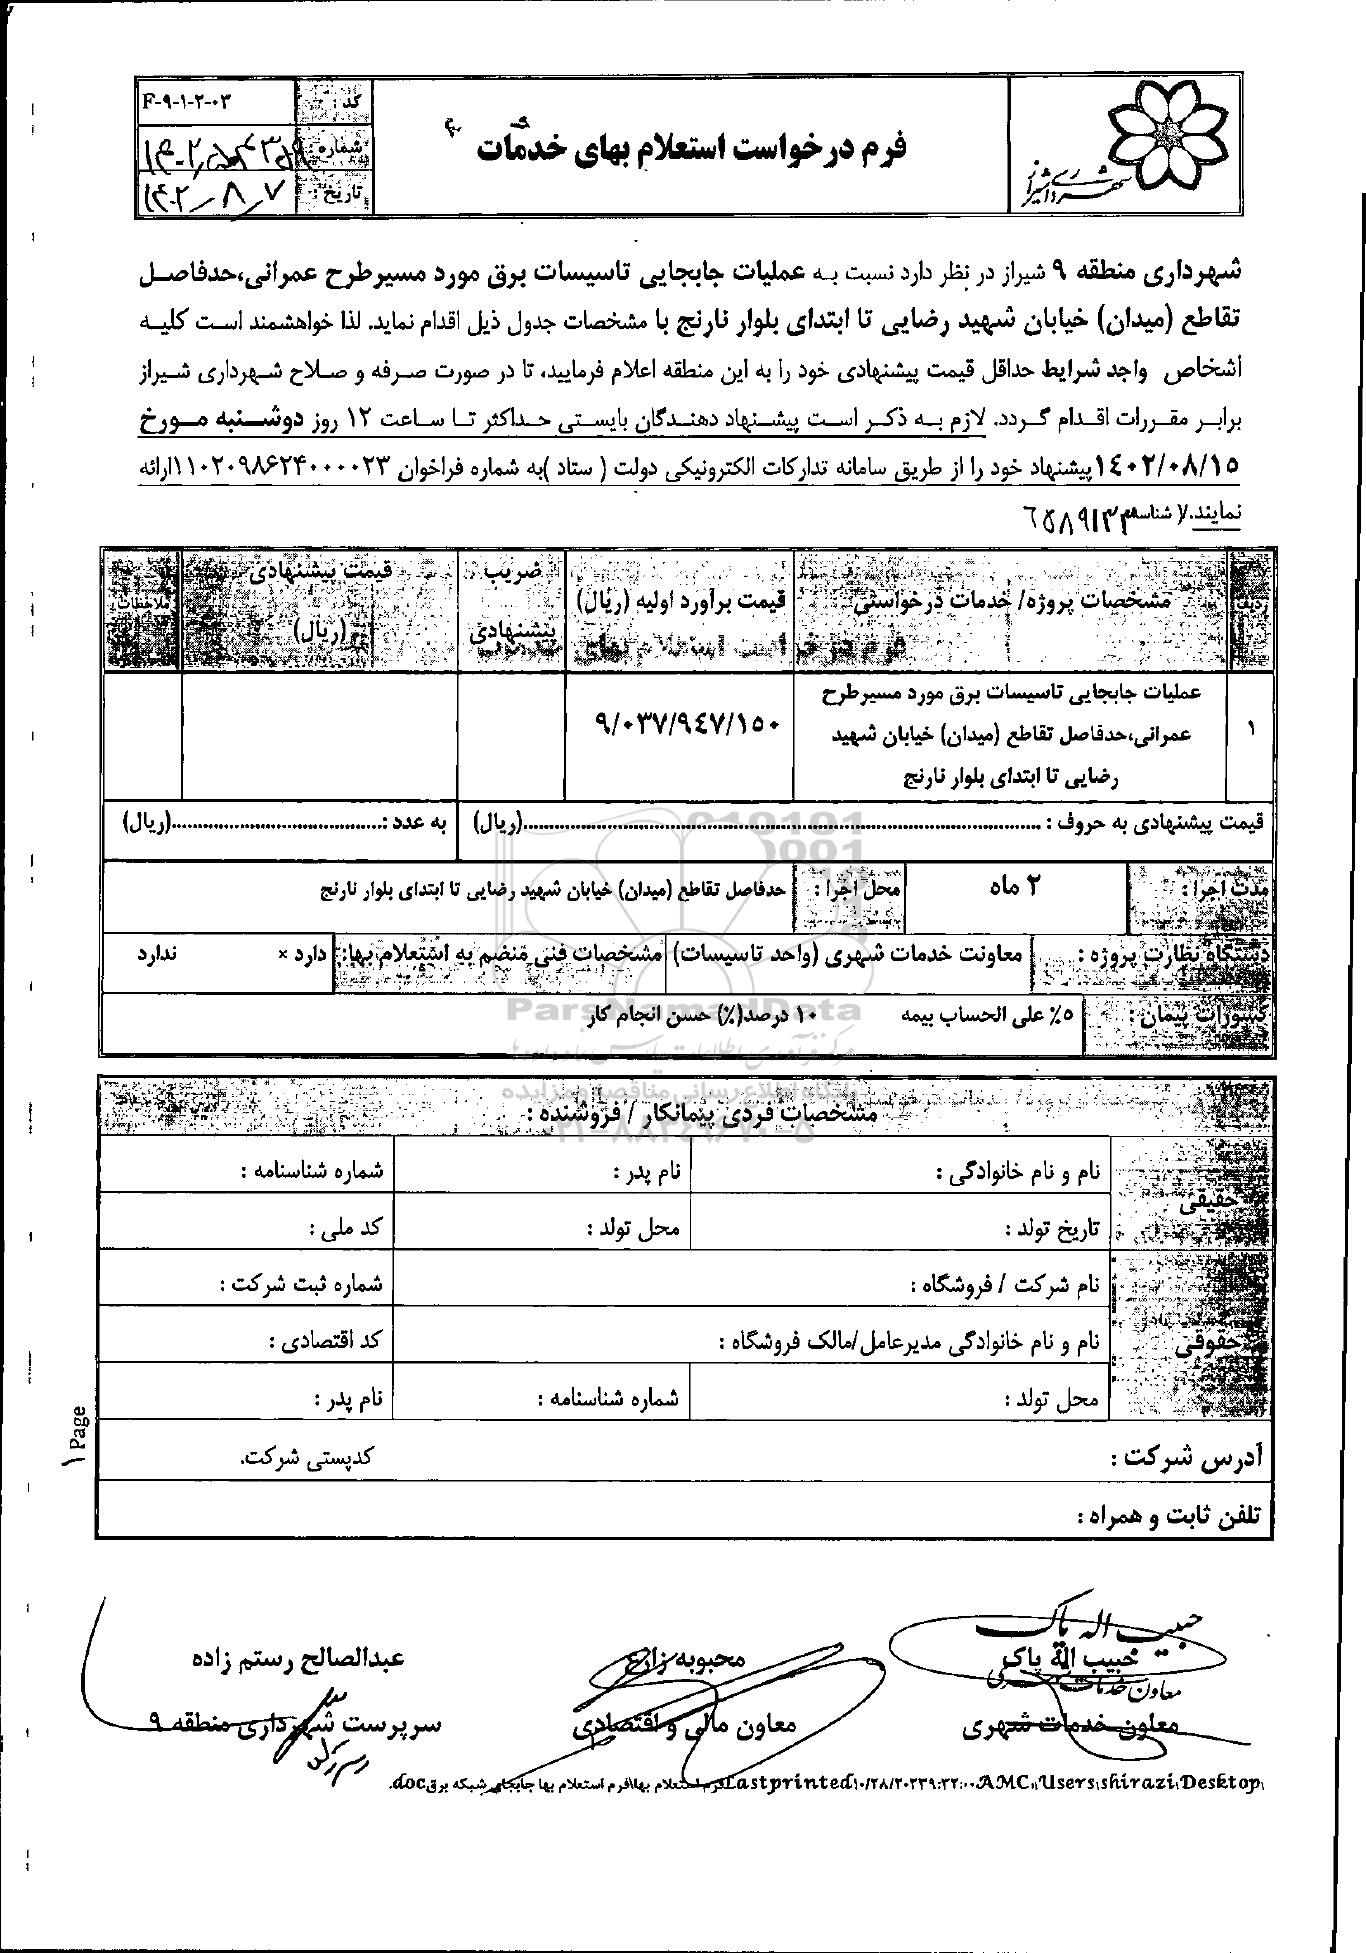 شهرداری شیراز
فرم درخواست استعلام بهای خدمات
کد : F-۹-۱-۲-۰۳
شماره :
تاریخ : ۱۴۰۲-۸-۷
شهرداری منطقه ۹ شیراز در نظر دارد نسبت به عملیات جابجایی تاسیسات برق مورد مسیرطرح عمرانی،حدفاصل
تقاطع (میدان) خیابان شهید رضایی تا ابتدای بلوار نارنج با مشخصات جدول ذیل اقدام نماید. لذا خواهشمند است کلیه
اشخاص واجد شرایط حداقل قیمت پیشنهادی خود را به این منطقه اعلام فرمایید، تا در صورت صرفه و صلاح شهرداری شیراز
برابر مقررات اقدام گردد. لازم به ذکر است پیشنهاد دهندگان بایستی حداکثر تا ساعت ۱۲ روز دوشنبه مورخ
۱٤۰۲/۰۸/۱٥ پیشنهاد خود را از طریق سامانه تدارکات الکترونیکی دولت ( ستاد )به شماره فراخوان ۱۱۰۲۰۹۸۶۲۴۰۰۰۰۲۳ارائه
نمایند.
ردیف مشخصات پروژه/ خدمات درخواستی قیمت برآورد اولیه (ریال) ضریب پیشنهادی قیمت پیشنهادی (ریال) ملاحظات
۱ عملیات جابجایی تاسیسات برق مورد مسیرطرح ۹/۰۳۷/۹٤۷/۱٥۰
عمرانی،حدفاصل تقاطع (میدان) خیابان شهید
رضایی تا ابتدای بلوار نارنج
قیمت پیشنهادی به حروف : ........................(ریال) به عدد :........................(ریال)
مدت اجرا : ۲ ماه محل اجرا : حدفاصل تقاطع (میدان) خیابان شهید رضایی تا ابتدای بلوار نارنج
دستگاه نظارت پروژه : معاونت خدمات شهری (واحد تاسیسات) مشخصات فنی منضم به استعلام بها: دارد × ندارد
کسورات پیمان : ۵٪ علی الحساب بیمه ۱۰ درصد(٪) حسن انجام کار
ParsNamadData
مشخصات فردی پیمانکار / فروشنده :
حقیقی
نام و نام خانوادگی : نام پدر : شماره شناسنامه :
تاریخ تولد : محل تولد : کد ملی :
حقوقی
نام شرکت / فروشگاه : شماره ثبت شرکت :
نام و نام خانوادگی مدیرعامل/مالک فروشگاه : کد اقتصادی :
محل تولد : شماره شناسنامه : نام پدر :
آدرس شرکت : کدپستی شرکت.
تلفن ثابت و همراه :
۱ Page
حبیب اله پاک
حبیب اله پاک محبوبه زارع عبدالصالح رستم زاده
معاون خدمات شهری
معاون خدمات شهری معاون مالی و اقتصادی سرپرست شهرداری منطقه ۹